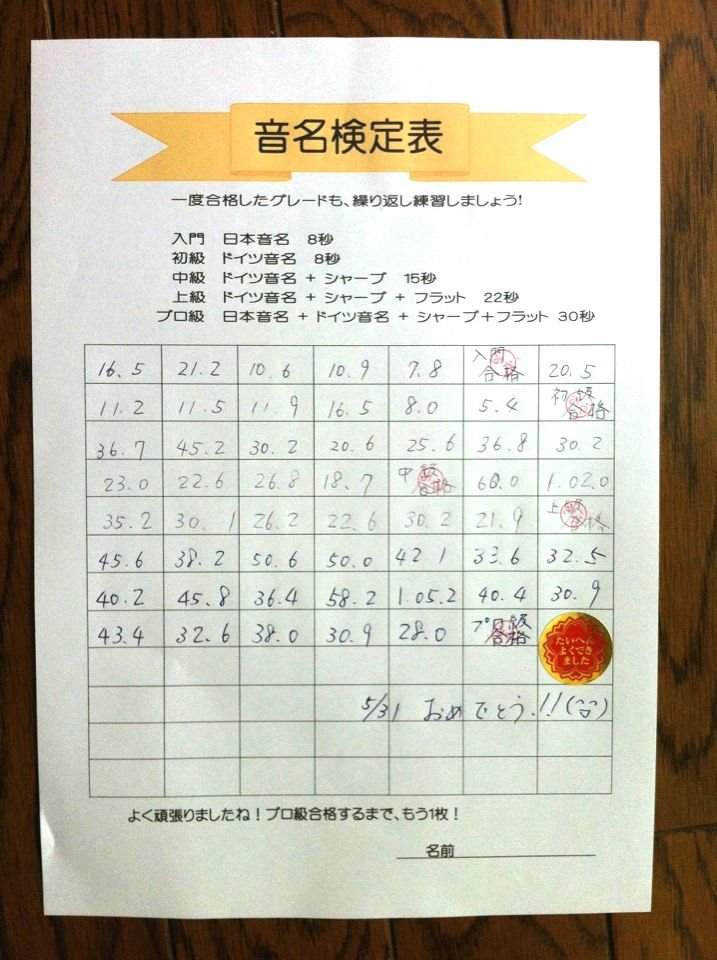 音名検定表
一度合格したグレードも、繰り返し練習しましょう!
入門 日本音名 8秒
初級 ドイツ音名 8秒
中級 ドイツ音名 + シャープ 15秒
上級 ドイツ音名 + シャープ + フラット 22秒
プロ級 日本音名 + ドイツ音名 + シャープ+フラット 30秒
16.5 21.2 10.6 10.9 7.8 入門合格 20.5
11.2 11.5 11.9 16.5 8.0 5.4 初級合格
36.7 45.2 30.2 20.6 25.6 36.8 30.2
23.0 22.6 26.8 18.7 中級合格 60.0 1.02.0
35.2 30.1 26.2 22.6 30.2 21.9 上級合格
45.6 38.2 50.6 50.0 42.1 33.6 32.5
40.2 45.8 36.4 58.2 1.05.2 40.4 30.9
43.4 32.6 38.0 30.9 28.0 プロ級合格
たいへん
よくでき
ました
5/31 おめでとう!!
よく頑張りましたね!プロ級合格するまで、もう1枚!
名前